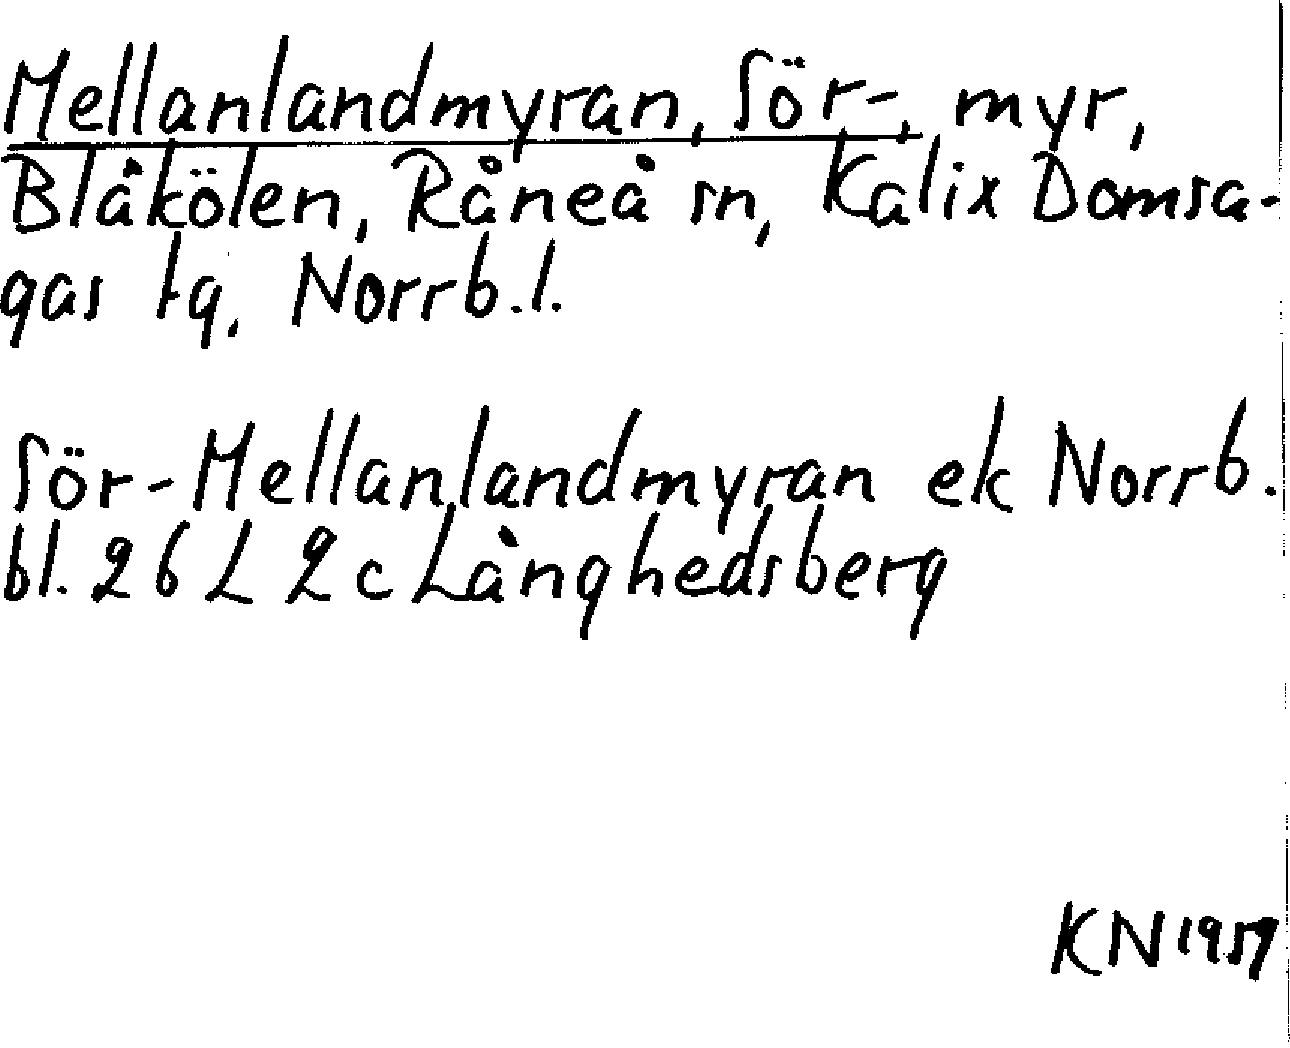 Mellanlandmyran, Sör-, myr,
Blåkölen, Råneå sn, Kalix Domsa-
gas tg, Norrb.l.
Sör-Mellanlandmyran ek Norrb.
bl. 26 L 2c Långhedsberg
KN 1959